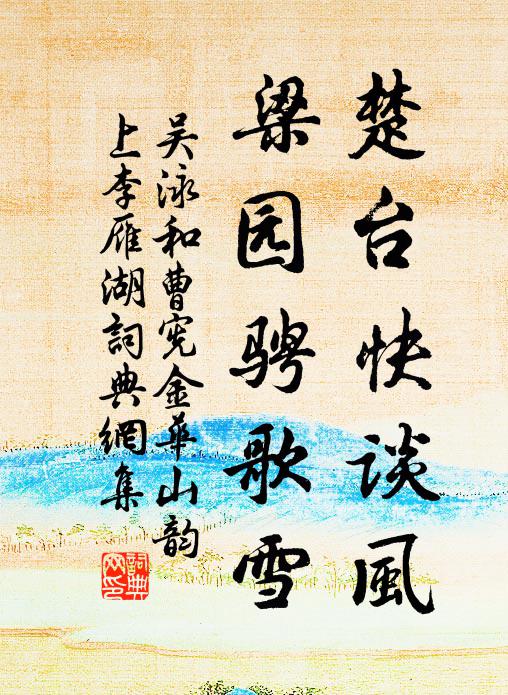 楚台快谈风
梁园骋歌雪
吴泳和曹宪金华山韵
上李雁湖詞典網集
詞典
网印